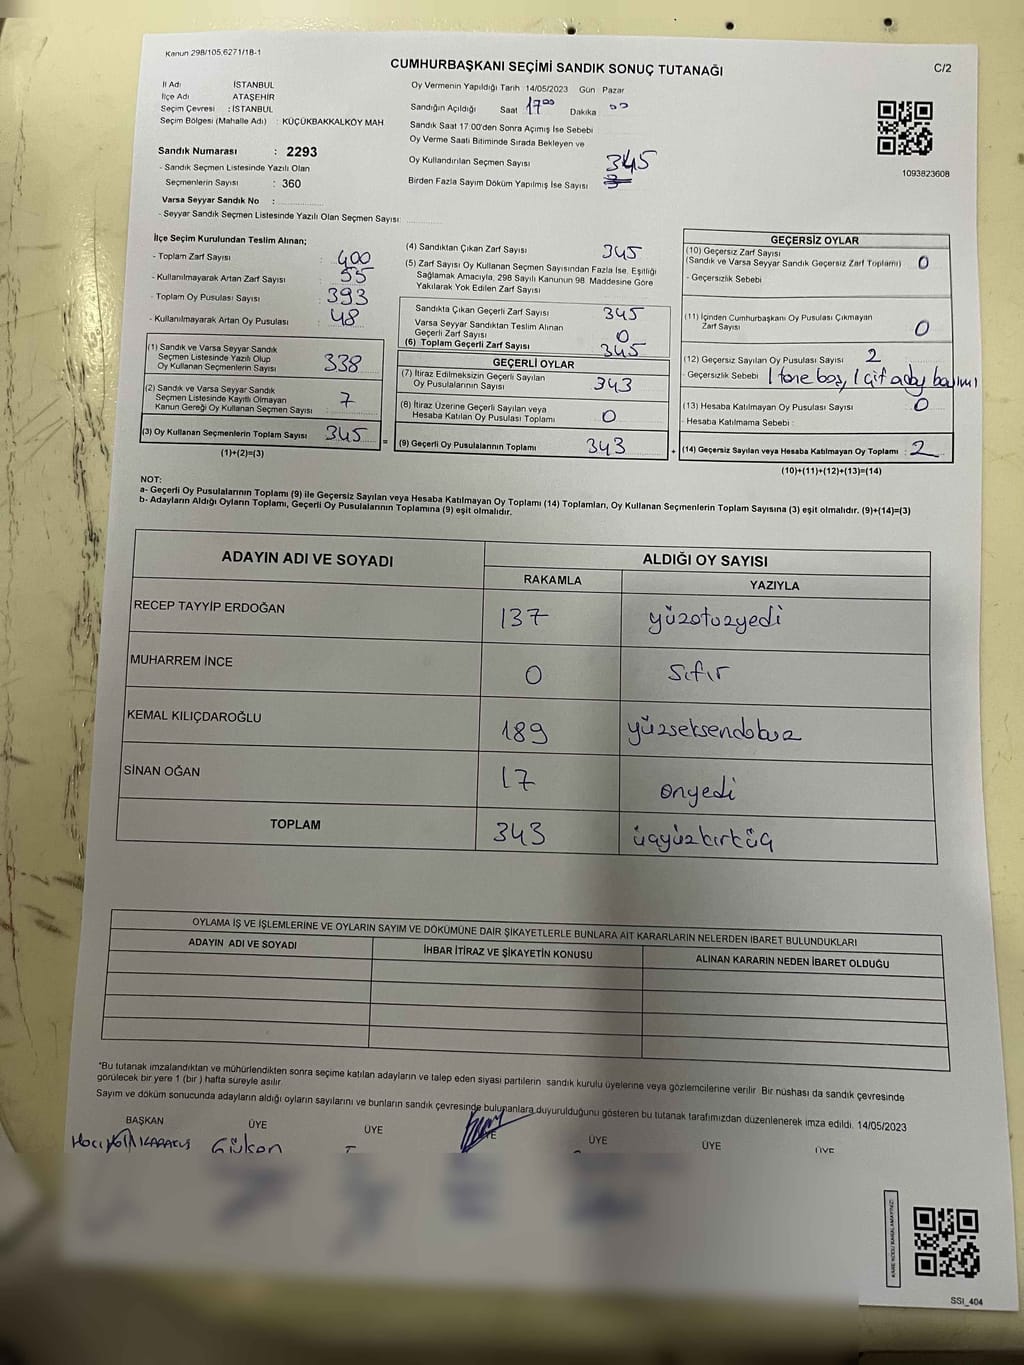 Kanun 298/105,6271/1B-1
CUMHURBAŞKANI SEÇİMİ SANDIK SONUÇ TUTANAĞI
C/2
İl Adı İSTANBUL
İlçe Adı ATAŞEHİR
Seçim Çevresi : İSTANBUL
Seçim Bölgesi (Mahalle Adı) : KÜÇÜKBAKKALKÖY MAH
Sandık Numarası : 2293
- Sandık Seçmen Listesinde Yazılı Olan
Seçmenlerin Sayısı : 360
Varsa Seyyar Sandık No :
- Seyyar Sandık Seçmen Listesinde Yazılı Olan Seçmen Sayısı:
Oy Vermenin Yapıldığı Tarih 14/05/2023 Gün Pazar
Sandığın Açıldığı Saat 17 00 Dakika 00
Sandık Saat 17:00'den Sonra Açımış İse Sebebi
Oy Verme Saati Bitiminde Sırada Bekleyen ve
Oy Kullandırılan Seçmen Sayısı 345
Birden Fazla Sayım Döküm Yapılmış İse Sayısı
1093823608
İlçe Seçim Kurulundan Teslim Alınan;
- Toplam Zarf Sayısı : 400
- Kullanılmayarak Artan Zarf Sayısı : 55
- Toplam Oy Pusulası Sayısı : 393
- Kullanılmayarak Artan Oy Pusulası : 48
(1) Sandık ve Varsa Seyyar Sandık
Seçmen Listesinde Yazılı Olup
Oy Kullanan Seçmenlerin Sayısı 338
(2) Sandık ve Varsa Seyyar Sandık
Seçmen Listesinde Kayıtlı Olmayan
Kanun Gereği Oy Kullanan Seçmen Sayısı 7
(3) Oy Kullanan Seçmenlerin Toplam Sayısı 345
(1)+(2)=(3)
(4) Sandıktan Çıkan Zarf Sayısı 345
(5) Zarf Sayısı Oy Kullanan Seçmen Sayısından Fazla İse, Eşitliği
Sağlamak Amacıyla, 298 Sayılı Kanunun 98. Maddesine Göre
Yakılarak Yok Edilen Zarf Sayısı
Sandıkta Çıkan Geçerli Zarf Sayısı 345
Varsa Seyyar Sandıktan Teslim Alınan
Geçerli Zarf Sayısı 0
(6) Toplam Geçerli Zarf Sayısı 345
GEÇERLİ OYLAR
(7) İtiraz Edilmeksizin Geçerli Sayılan
Oy Pusulalarının Sayısı 343
(8) İtiraz Üzerine Geçerli Sayılan veya
Hesaba Katılan Oy Pusulası Toplamı 0
= (9) Geçerli Oy Pusulalarının Toplamı 343
GEÇERSİZ OYLAR
(10) Geçersiz Zarf Sayısı
(Sandık ve Varsa Seyyar Sandık Geçersiz Zarf Toplamı) 0
- Geçersizlik Sebebi
(11) İçinden Cumhurbaşkanı Oy Pusulası Çıkmayan
Zarf Sayısı 0
(12) Geçersiz Sayılan Oy Pusulası Sayısı 2
- Geçersizlik Sebebi 1 tane boş, 1 çift aday basımı
(13) Hesaba Katılmayan Oy Pusulası Sayısı 0
- Hesaba Katılmama Sebebi :
+ (14) Geçersiz Sayılan veya Hesaba Katılmayan Oy Toplamı : 2
(10)+(11)+(12)+(13)=(14)
NOT:
a- Geçerli Oy Pusulalarının Toplamı (9) ile Geçersiz Sayılan veya Hesaba Katılmayan Oy Toplamı (14) Toplamları, Oy Kullanan Seçmenlerin Toplam Sayısına (3) eşit olmalıdır. (9)+(14)=(3)
b- Adayların Aldığı Oyların Toplamı, Geçerli Oy Pusulalarının Toplamına (9) eşit olmalıdır.
ADAYIN ADI VE SOYADI ALDIĞI OY SAYISI
RAKAMLA YAZIYLA
RECEP TAYYİP ERDOĞAN 137 yüzotuzyedi
MUHARREM İNCE 0 sıfır
KEMAL KILIÇDAROĞLU 189 yüzseksendokuz
SİNAN OĞAN 17 onyedi
TOPLAM 343 üçyüzkırküç
OYLAMA İŞ VE İŞLEMLERİNE VE OYLARIN SAYIM VE DÖKÜMÜNE DAİR ŞİKAYETLERLE BUNLARA AİT KARARLARIN NELERDEN İBARET BULUNDUKLARI
ADAYIN ADI VE SOYADI İHBAR İTİRAZ VE ŞİKAYETİN KONUSU ALINAN KARARIN NEDEN İBARET OLDUĞU
*Bu tutanak imzalandıktan ve mühürlendikten sonra seçime katılan adayların ve talep eden siyasi partilerin sandık kurulu üyelerine veya gözlemcilerine verilir. Bir nüshası da sandık çevresinde
görülecek bir yere 1 (bir) hafta süreyle asılır.
Sayım ve döküm sonucunda adayların aldığı oyların sayılarını ve bunların sandık çevresinde bulunanlara duyurulduğunu gösteren bu tutanak tarafımızdan düzenlenerek imza edildi. 14/05/2023
BAŞKAN ÜYE ÜYE ÜYE ÜYE ÜYE
Gülkan
SSI_404